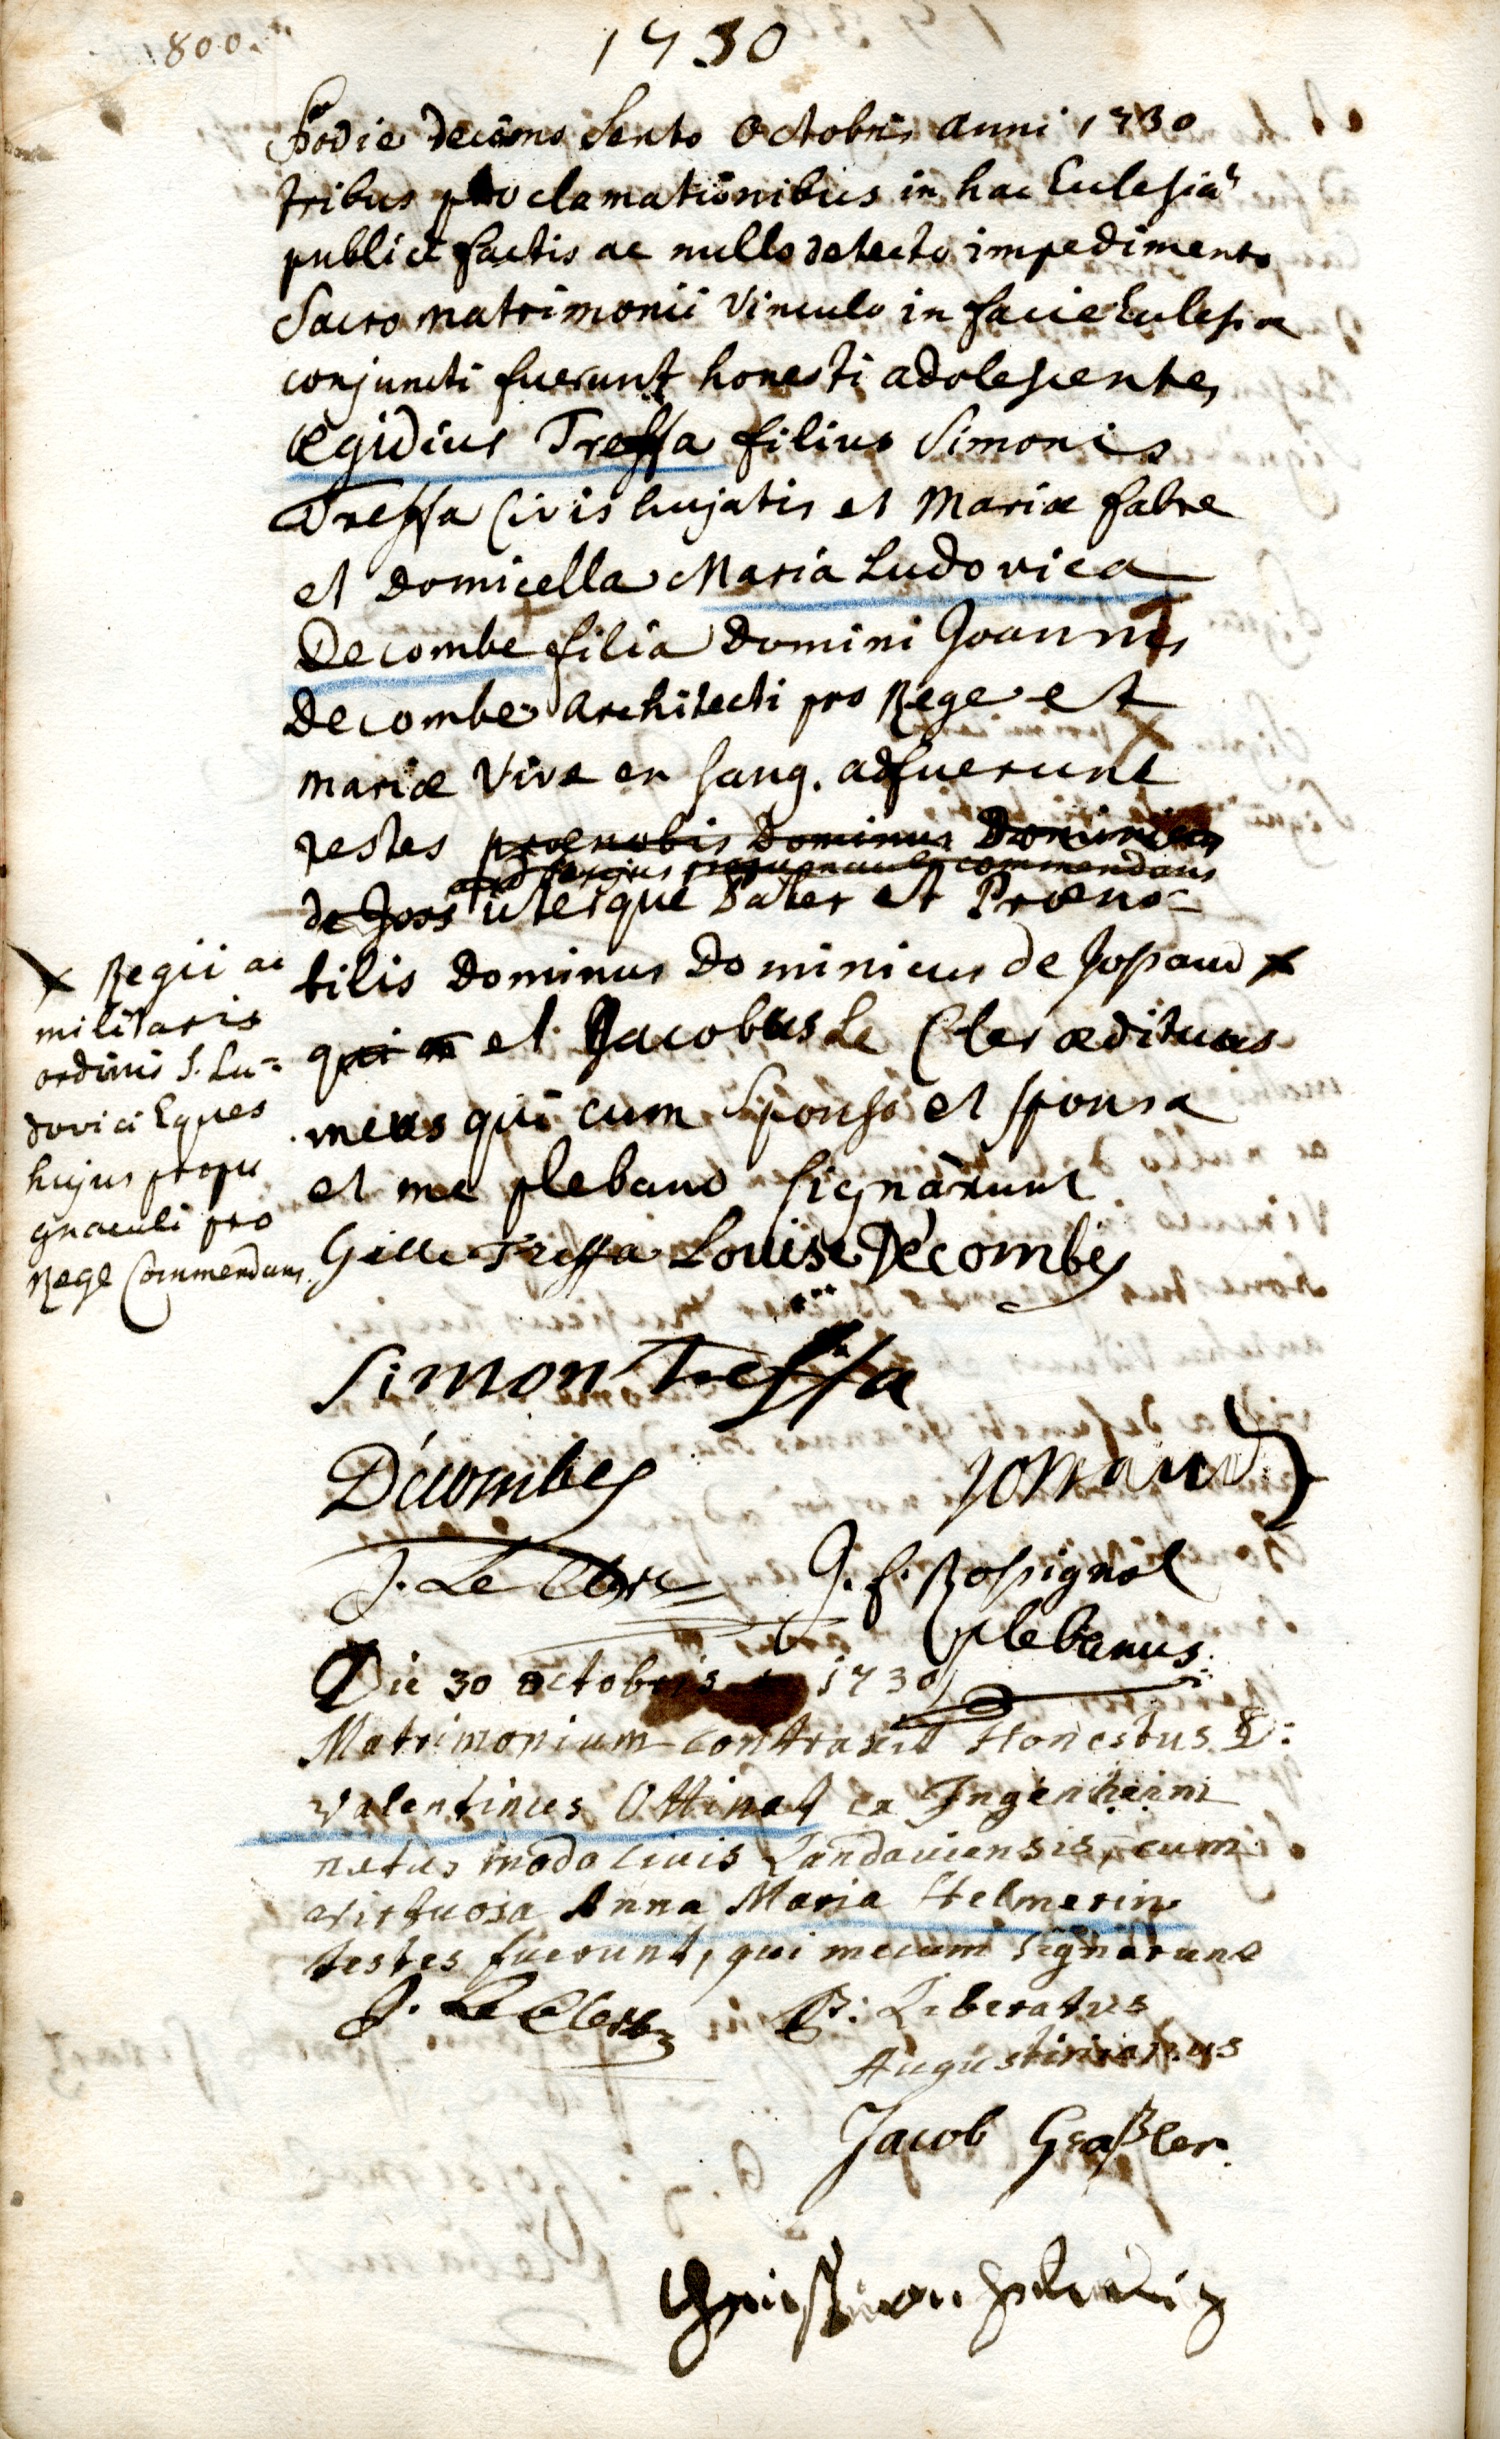 800.
1730
Hodie decimo Sexto Octobris anni 1730
tribus proclamationibus in hac Eclesia
publice factis ac nullo detecto impedimento
Sacro matrimonii Vinculo in facie Eclesiæ
conjuncti fuerunt honesti adolescentes
Ægidius Treffa filius Simonis
Treffa Civis hujatis et Mariæ fabre
et Domicella Maria Ludovica
Decombe filia Domini Joannis
Decombe architecti pro Rege et
mariæ Vive en sang. adfuerunt
testes prænobis Dominus Dominicus
propugnaculi commendans
de Joss uterque Pater et Præno-
bilis Dominus Dominicus de Jossaud x
qui et Jacobus Le Cler ædituus
meus qui cum Sponso et sponsa
et me plebano signârunt
x Regii ac
militaris
ordinis S. Lu=
dovici Eques
hujus propu
gnaculi pro
Rege Commendans.
Gille Treffa Louise Décombes
Simon Treffa
Décombes Jossaud
J. Le Clerc J. f. Rossignol
plebanus
Die 30 octobris 1730
Matrimonium contraxit Honestus D:
Valentinus Ottinet ex Ingenheim
natus modo civis Landaviensis, cum
virtuosa Anna Maria Helmerin
testes fuerunt, qui mecum signarunt
J. Le Clerc P: Liberatus
Augustinianus
Jacob Graßler.